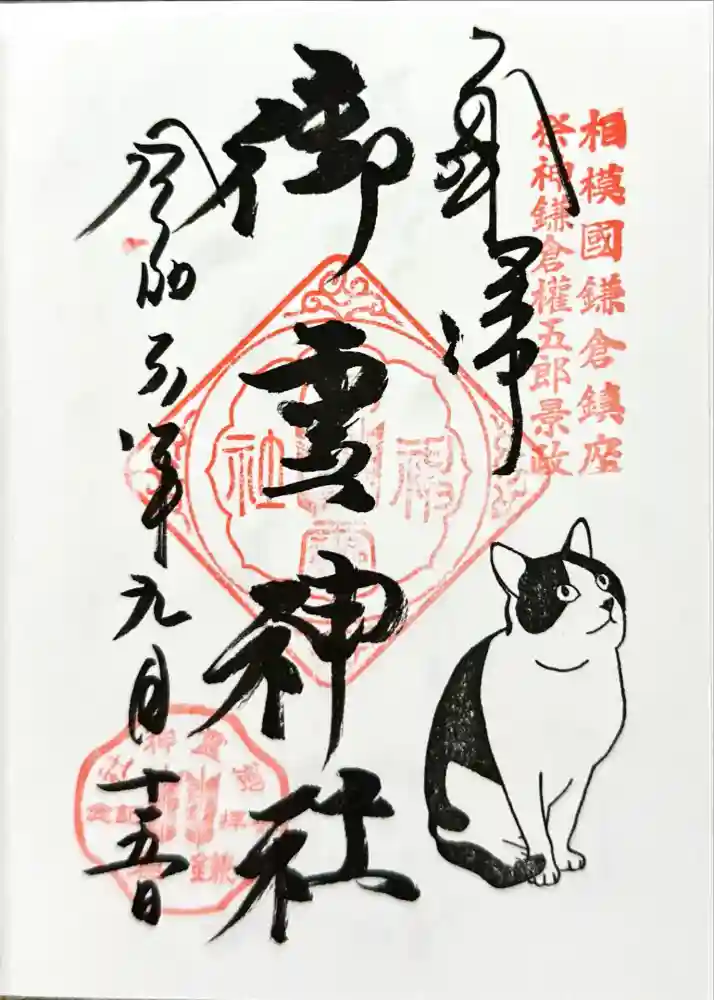 相模國鎌倉鎮座
祭神鎌倉權五郎景政
奉拝
御霊神社
令和六年九月十五日
神社